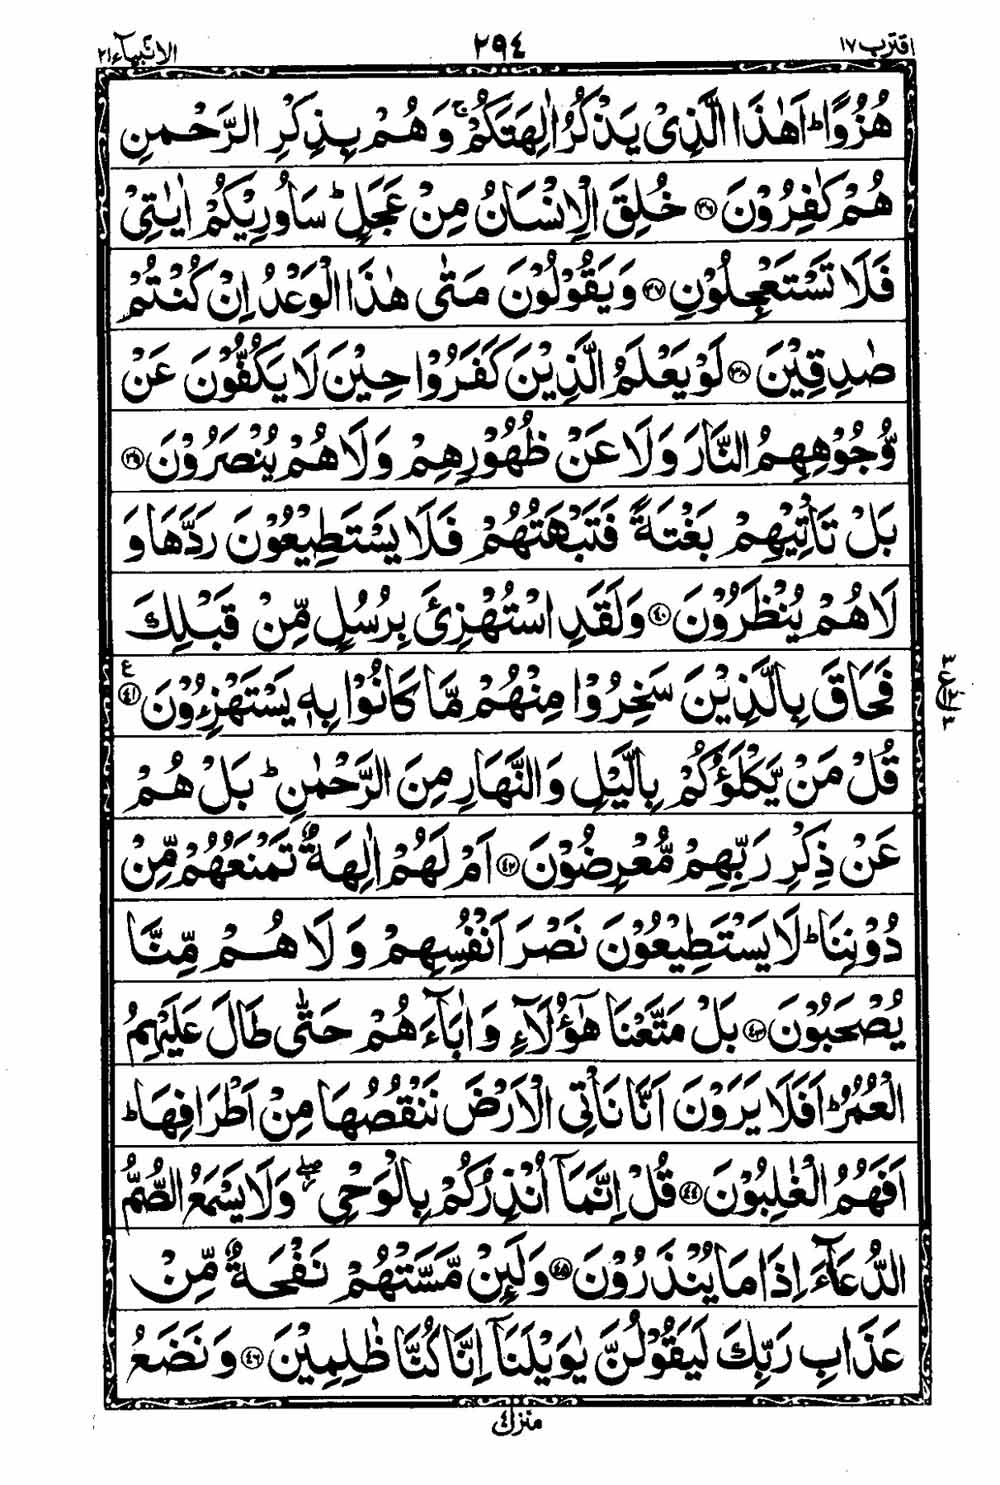 اقترب ١٧ ٢٩٤ الانبیآء ٢١
هُزُوًا ؕ اَهٰذَا الَّذِیْ یَذْكُرُ اٰلِهَتَكُمْ ۚ وَ هُمْ بِذِكْرِ الرَّحْمٰنِ
هُمْ كٰفِرُوْنَ ﴿٣٦﴾ خُلِقَ الْاِنْسَانُ مِنْ عَجَلٍ ؕ سَاُورِیْكُمْ اٰیٰتِیْ
فَلَا تَسْتَعْجِلُوْنِ ﴿٣٧﴾ وَ یَقُوْلُوْنَ مَتٰی هٰذَا الْوَعْدُ اِنْ كُنْتُمْ
صٰدِقِیْنَ ﴿٣٨﴾ لَوْ یَعْلَمُ الَّذِیْنَ كَفَرُوْا حِیْنَ لَا یَكُفُّوْنَ عَنْ
وُّجُوْهِهِمُ النَّارَ وَ لَا عَنْ ظُهُوْرِهِمْ وَ لَا هُمْ یُنْصَرُوْنَ ﴿٣٩﴾
بَلْ تَاْتِیْهِمْ بَغْتَةً فَتَبْهَتُهُمْ فَلَا یَسْتَطِیْعُوْنَ رَدَّهَا وَ
لَا هُمْ یُنْظَرُوْنَ ﴿٤٠﴾ وَ لَقَدِ اسْتُهْزِئَ بِرُسُلٍ مِّنْ قَبْلِكَ
فَحَاقَ بِالَّذِیْنَ سَخِرُوْا مِنْهُمْ مَّا كَانُوْا بِهٖ یَسْتَهْزِءُوْنَ ﴿٤١﴾ ع
قُلْ مَنْ یَّكْلَؤُكُمْ بِالَّیْلِ وَ النَّهَارِ مِنَ الرَّحْمٰنِ ؕ بَلْ هُمْ
عَنْ ذِكْرِ رَبِّهِمْ مُّعْرِضُوْنَ ﴿٤٢﴾ اَمْ لَهُمْ اٰلِهَةٌ تَمْنَعُهُمْ مِّنْ
دُوْنِنَا ؕ لَا یَسْتَطِیْعُوْنَ نَصْرَ اَنْفُسِهِمْ وَ لَا هُمْ مِّنَّا
یُصْحَبُوْنَ ﴿٤٣﴾ بَلْ مَتَّعْنَا هٰۤؤُلَآءِ وَ اٰبَآءَهُمْ حَتّٰی طَالَ عَلَیْهِمُ
الْعُمُرُ ؕ اَفَلَا یَرَوْنَ اَنَّا نَاْتِی الْاَرْضَ نَنْقُصُهَا مِنْ اَطْرَافِهَا ؕ
اَفَهُمُ الْغٰلِبُوْنَ ﴿٤٤﴾ قُلْ اِنَّمَاۤ اُنْذِرُكُمْ بِالْوَحْیِ ۖؗ وَ لَا یَسْمَعُ الصُّمُّ
الدُّعَآءَ اِذَا مَا یُنْذَرُوْنَ ﴿٤٥﴾ وَ لَىِٕنْ مَّسَّتْهُمْ نَفْحَةٌ مِّنْ
عَذَابِ رَبِّكَ لَیَقُوْلُنَّ یٰوَیْلَنَاۤ اِنَّا كُنَّا ظٰلِمِیْنَ ﴿٤٦﴾ وَ نَضَعُ
منزل ٤